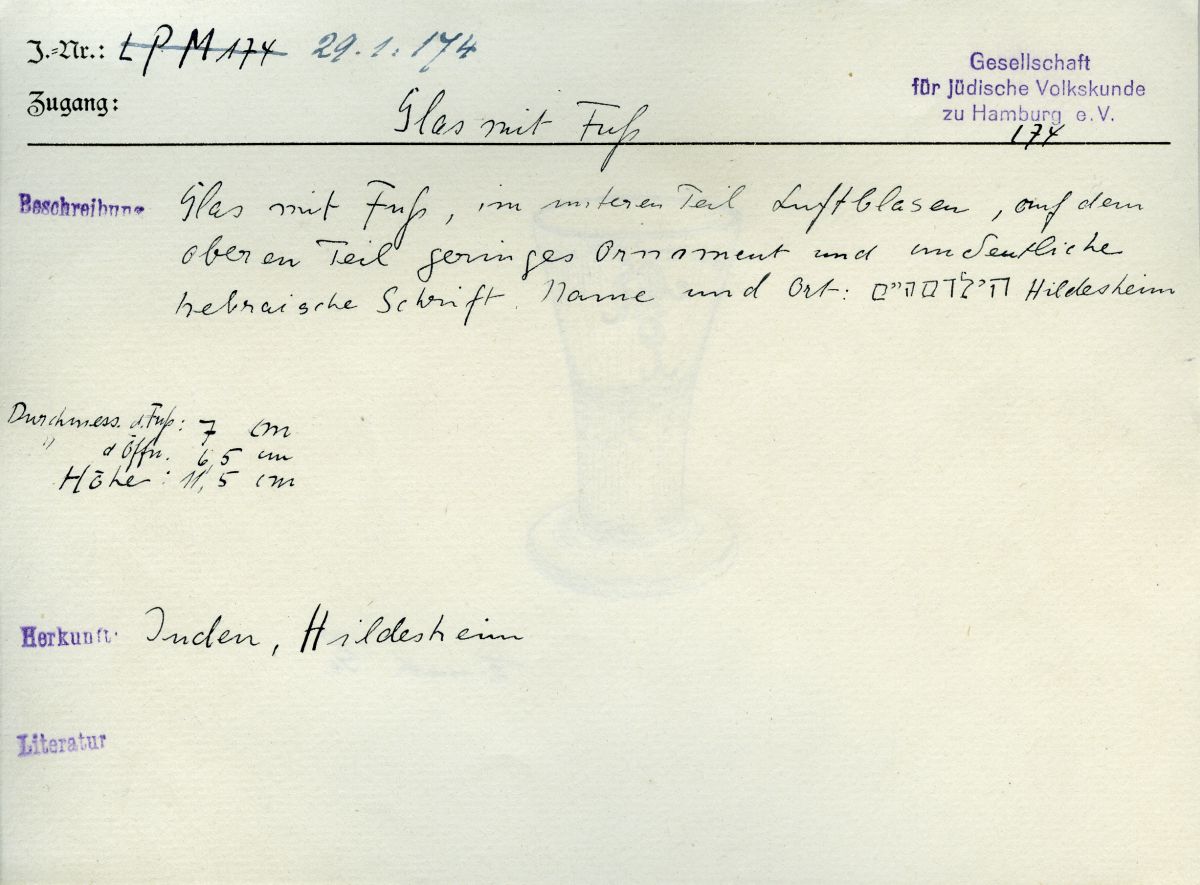 J.-Nr.: LPM 174 29.1:174
Gesellschaft
für jüdische Volkskunde
zu Hamburg e.V.
174
Zugang:
Glas mit Fuß
Beschreibung Glas mit Fuß, im unteren Teil Luftblasen, auf dem
oberen Teil geringes Ornament und undeutliche
hebraische Schrift. Name und Ort: הילדסהיים Hildesheim
Durchmess. d. Fuß: 7 cm
" d Öffn. 6,5 cm
Höhe: 11,5 cm
Herkunft: Juden, Hildesheim
Literatur